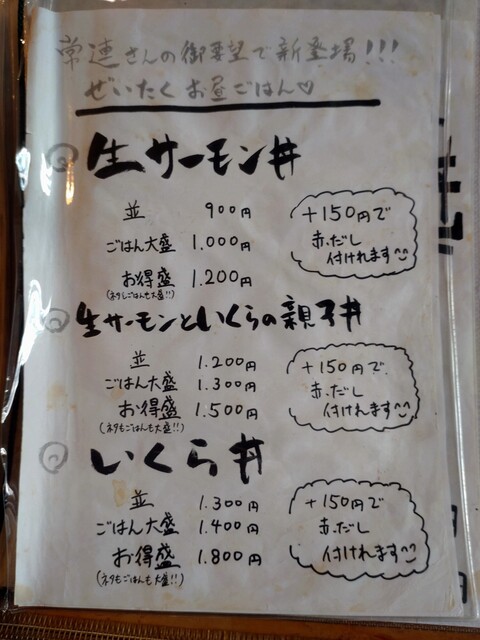 常連さんの御要望で新登場!!!
ぜいたくお昼ごはん♡
生サーモン丼
並 900円
ごはん大盛 1.000円
お得盛 1.200円
(ネタもごはんも大盛!!)
+150円で
赤だし
付けれます^^
生サーモンといくらの親子丼
並 1.200円
ごはん大盛 1.300円
お得盛 1.500円
(ネタもごはんも大盛!!)
+150円で
赤だし
付けれます^^
いくら丼
並 1.300円
ごはん大盛 1.400円
お得盛 1.800円
(ネタもごはんも大盛!!)
+150円で
赤だし
付けれます^^